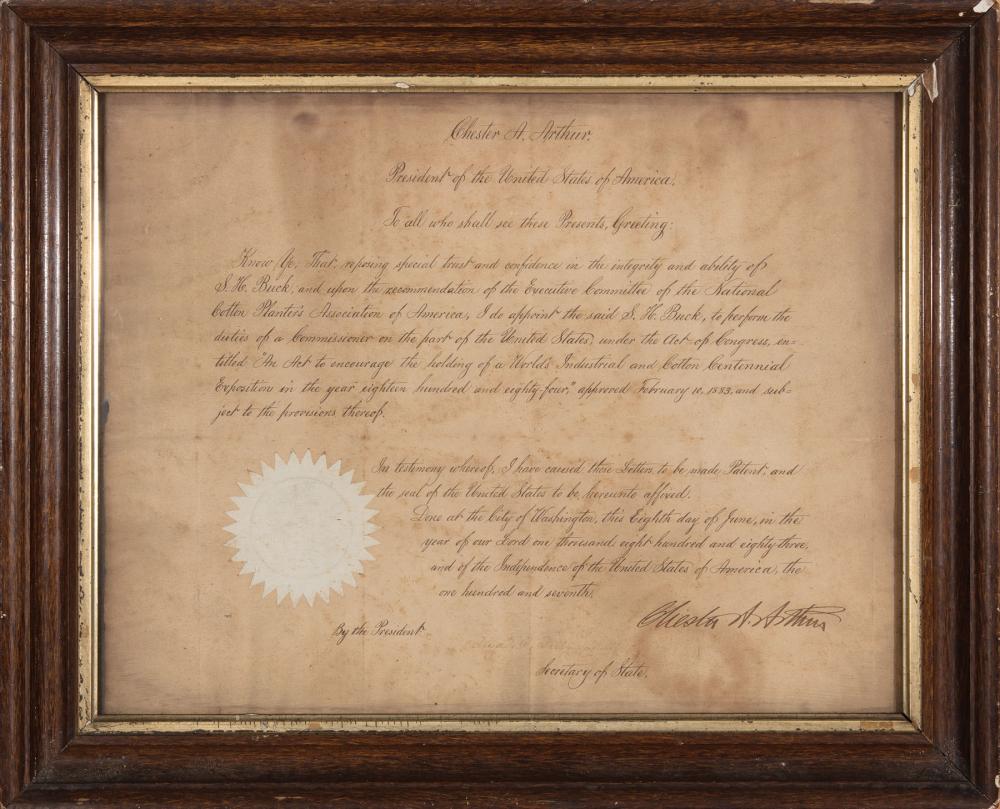 Chester A. Arthur.
President of the United States of America,
To all who shall see these Presents, Greeting:
Know Ye, That, reposing special trust and confidence in the integrity and ability of
S. H. Buck, and upon the recommendation of the Executive Committee of the National
Cotton Planter's Association of America, I do appoint the said S. H. Buck, to perform the
duties of a Commissioner on the part of the United States, under the Act of Congress, en-
titled "An Act to encourage the holding of a World's Industrial and Cotton Centennial
Exposition in the year eighteen hundred and eighty-four," approved February 10, 1883, and sub-
ject to the provisions thereof.
In testimony whereof, I have caused these Letters to be made Patent, and
the seal of the United States to be hereunto affixed.
Done at the City of Washington, this Eighth day of June, in the
year of our Lord one thousand, eight hundred and eighty-three,
and of the Independence of the United States of America, the
one hundred and seventh.
Chester A. Arthur
By the President:
Secretary of State.